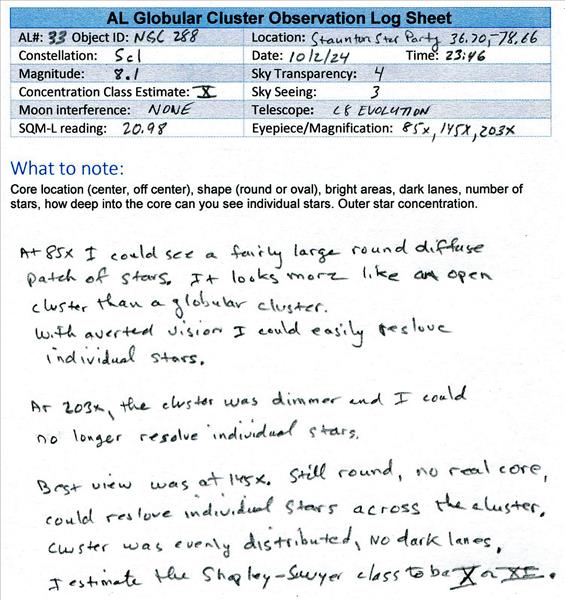 AL Globular Cluster Observation Log Sheet
AL#: 33 Object ID: NGC 288 Location: Staunton Star Party 36.70,-78.66
Constellation: Scl Date: 10/2/24 Time: 23:46
Magnitude: 8.1 Sky Transparency: 4
Concentration Class Estimate: X Sky Seeing: 3
Moon interference: NONE Telescope: C8 EVOLUTION
SQM-L reading: 20.98 Eyepiece/Magnification: 85x, 145X, 203X
What to note:
Core location (center, off center), shape (round or oval), bright areas, dark lanes, number of
stars, how deep into the core can you see individual stars. Outer star concentration.
At 85x I could see a fairly large round diffuse
patch of stars. It looks more like an open
cluster than a globular cluster.
With averted vision I could easily reslove
individual stars.
At 203x, the cluster was dimmer and I could
no longer resolve individual stars.
Best view was at 145x. Still round, no real core,
could reslove individual stars across the cluster.
Cluster was evenly distributed, no dark lanes.
I estimate the Shapley-Sawyer class to be X or XI.